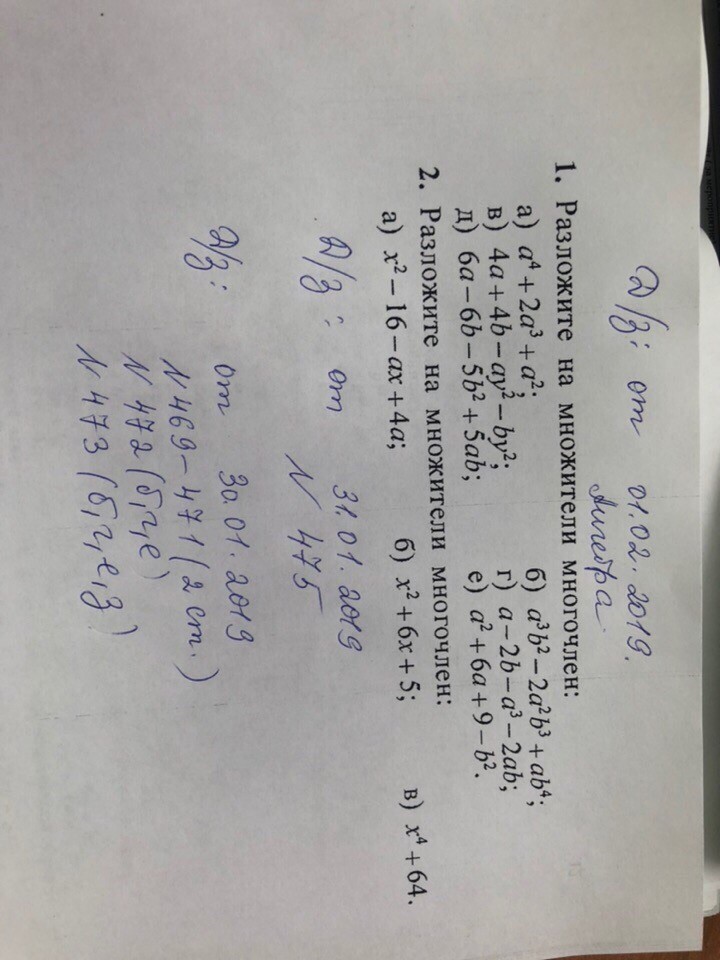 Д/з: от 01.02.2019.
Алгебра.
1. Разложите на множители многочлен:
а) a⁴ + 2a³ + a²; б) a³b² − 2a²b³ + ab⁴;
в) 4a + 4b − ay² − by²; г) a − 2b − a³ − 2ab;
д) 6a − 6b − 5b² + 5ab; е) a² + 6a + 9 − b².
2. Разложите на множители многочлен:
а) x² − 16 − ax + 4a; б) x² + 6x + 5; в) x⁴ + 64.
Д/з: от 31.01.2019
N 475
Д/з: от 30.01.2019
N 469 – 471 (2 ст.)
N 472 (б, г, е)
N 473 (б, г, е, з)